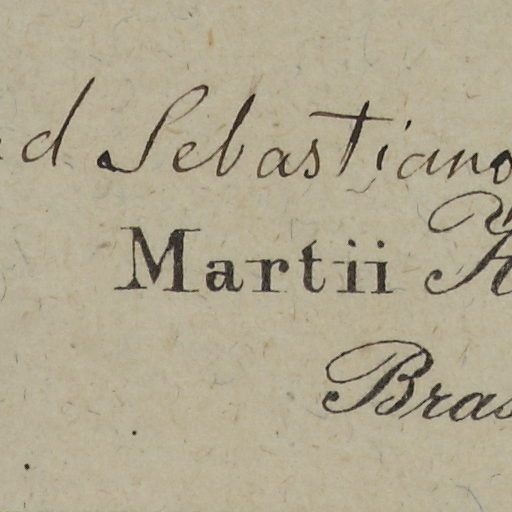 d Sebastiano
Martii H
Bras